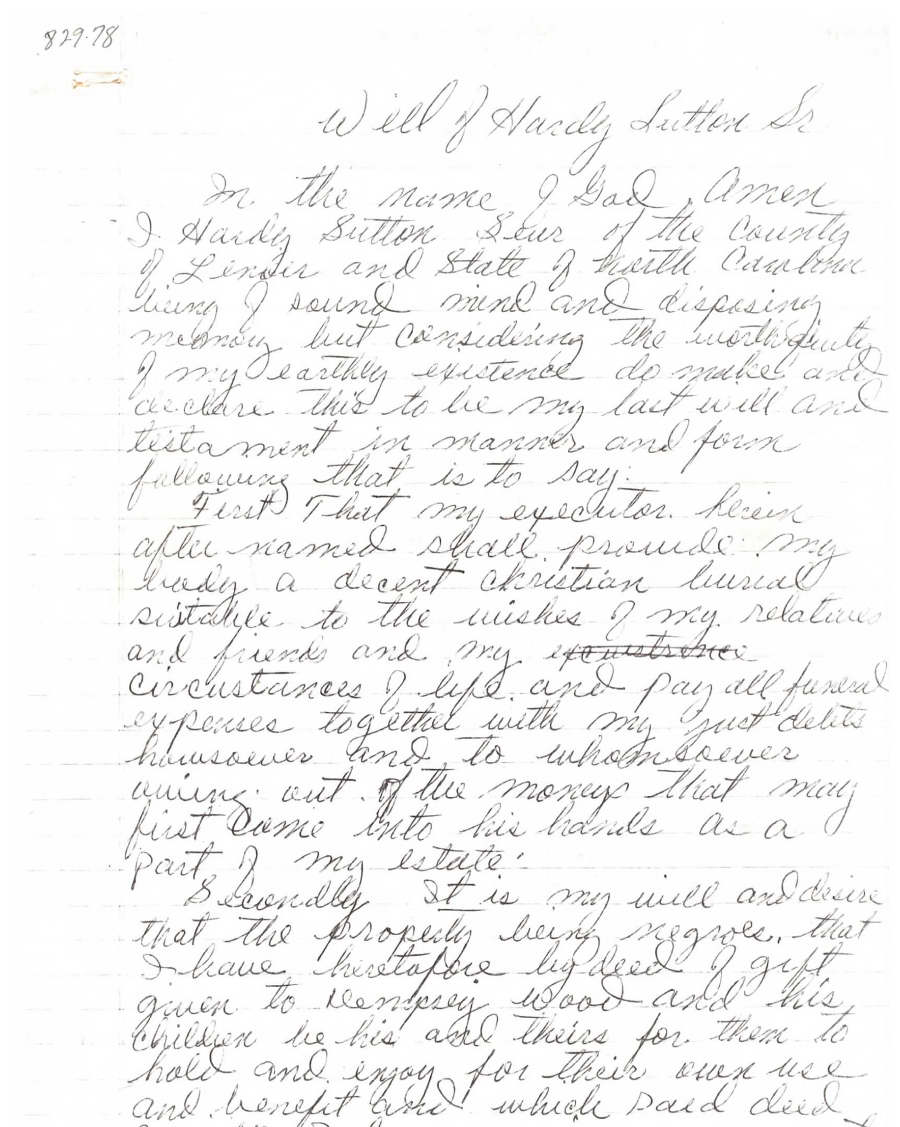 829.78
Will of Hardy Sutton Sr
In the name of God, Amen
I Hardy Sutton Senr of the County
of Lenoir and State of North Carolina
being of sound mind and disposing
memory but considering the
of my earthly existence do make and
declare this to be my last will and
testament in manner and form
following that is to say:
First That my executor herein
after named shall provide my
body a decent christian burial
suitable to the wishes of my relatives
and friends and my
circustances of life and pay all funeral
expenses together with my just debts
howsoever and to whomsoever
owing out of the moneys that may
first come into his hands as a
part of my estate.
Secondly It is my will and desire
that the property being negroes, that
I have heretofore by deed of gift
given to Dempsey Wood and his
children be his and theirs for them to
hold and enjoy for their own use
and benefit and which said deed